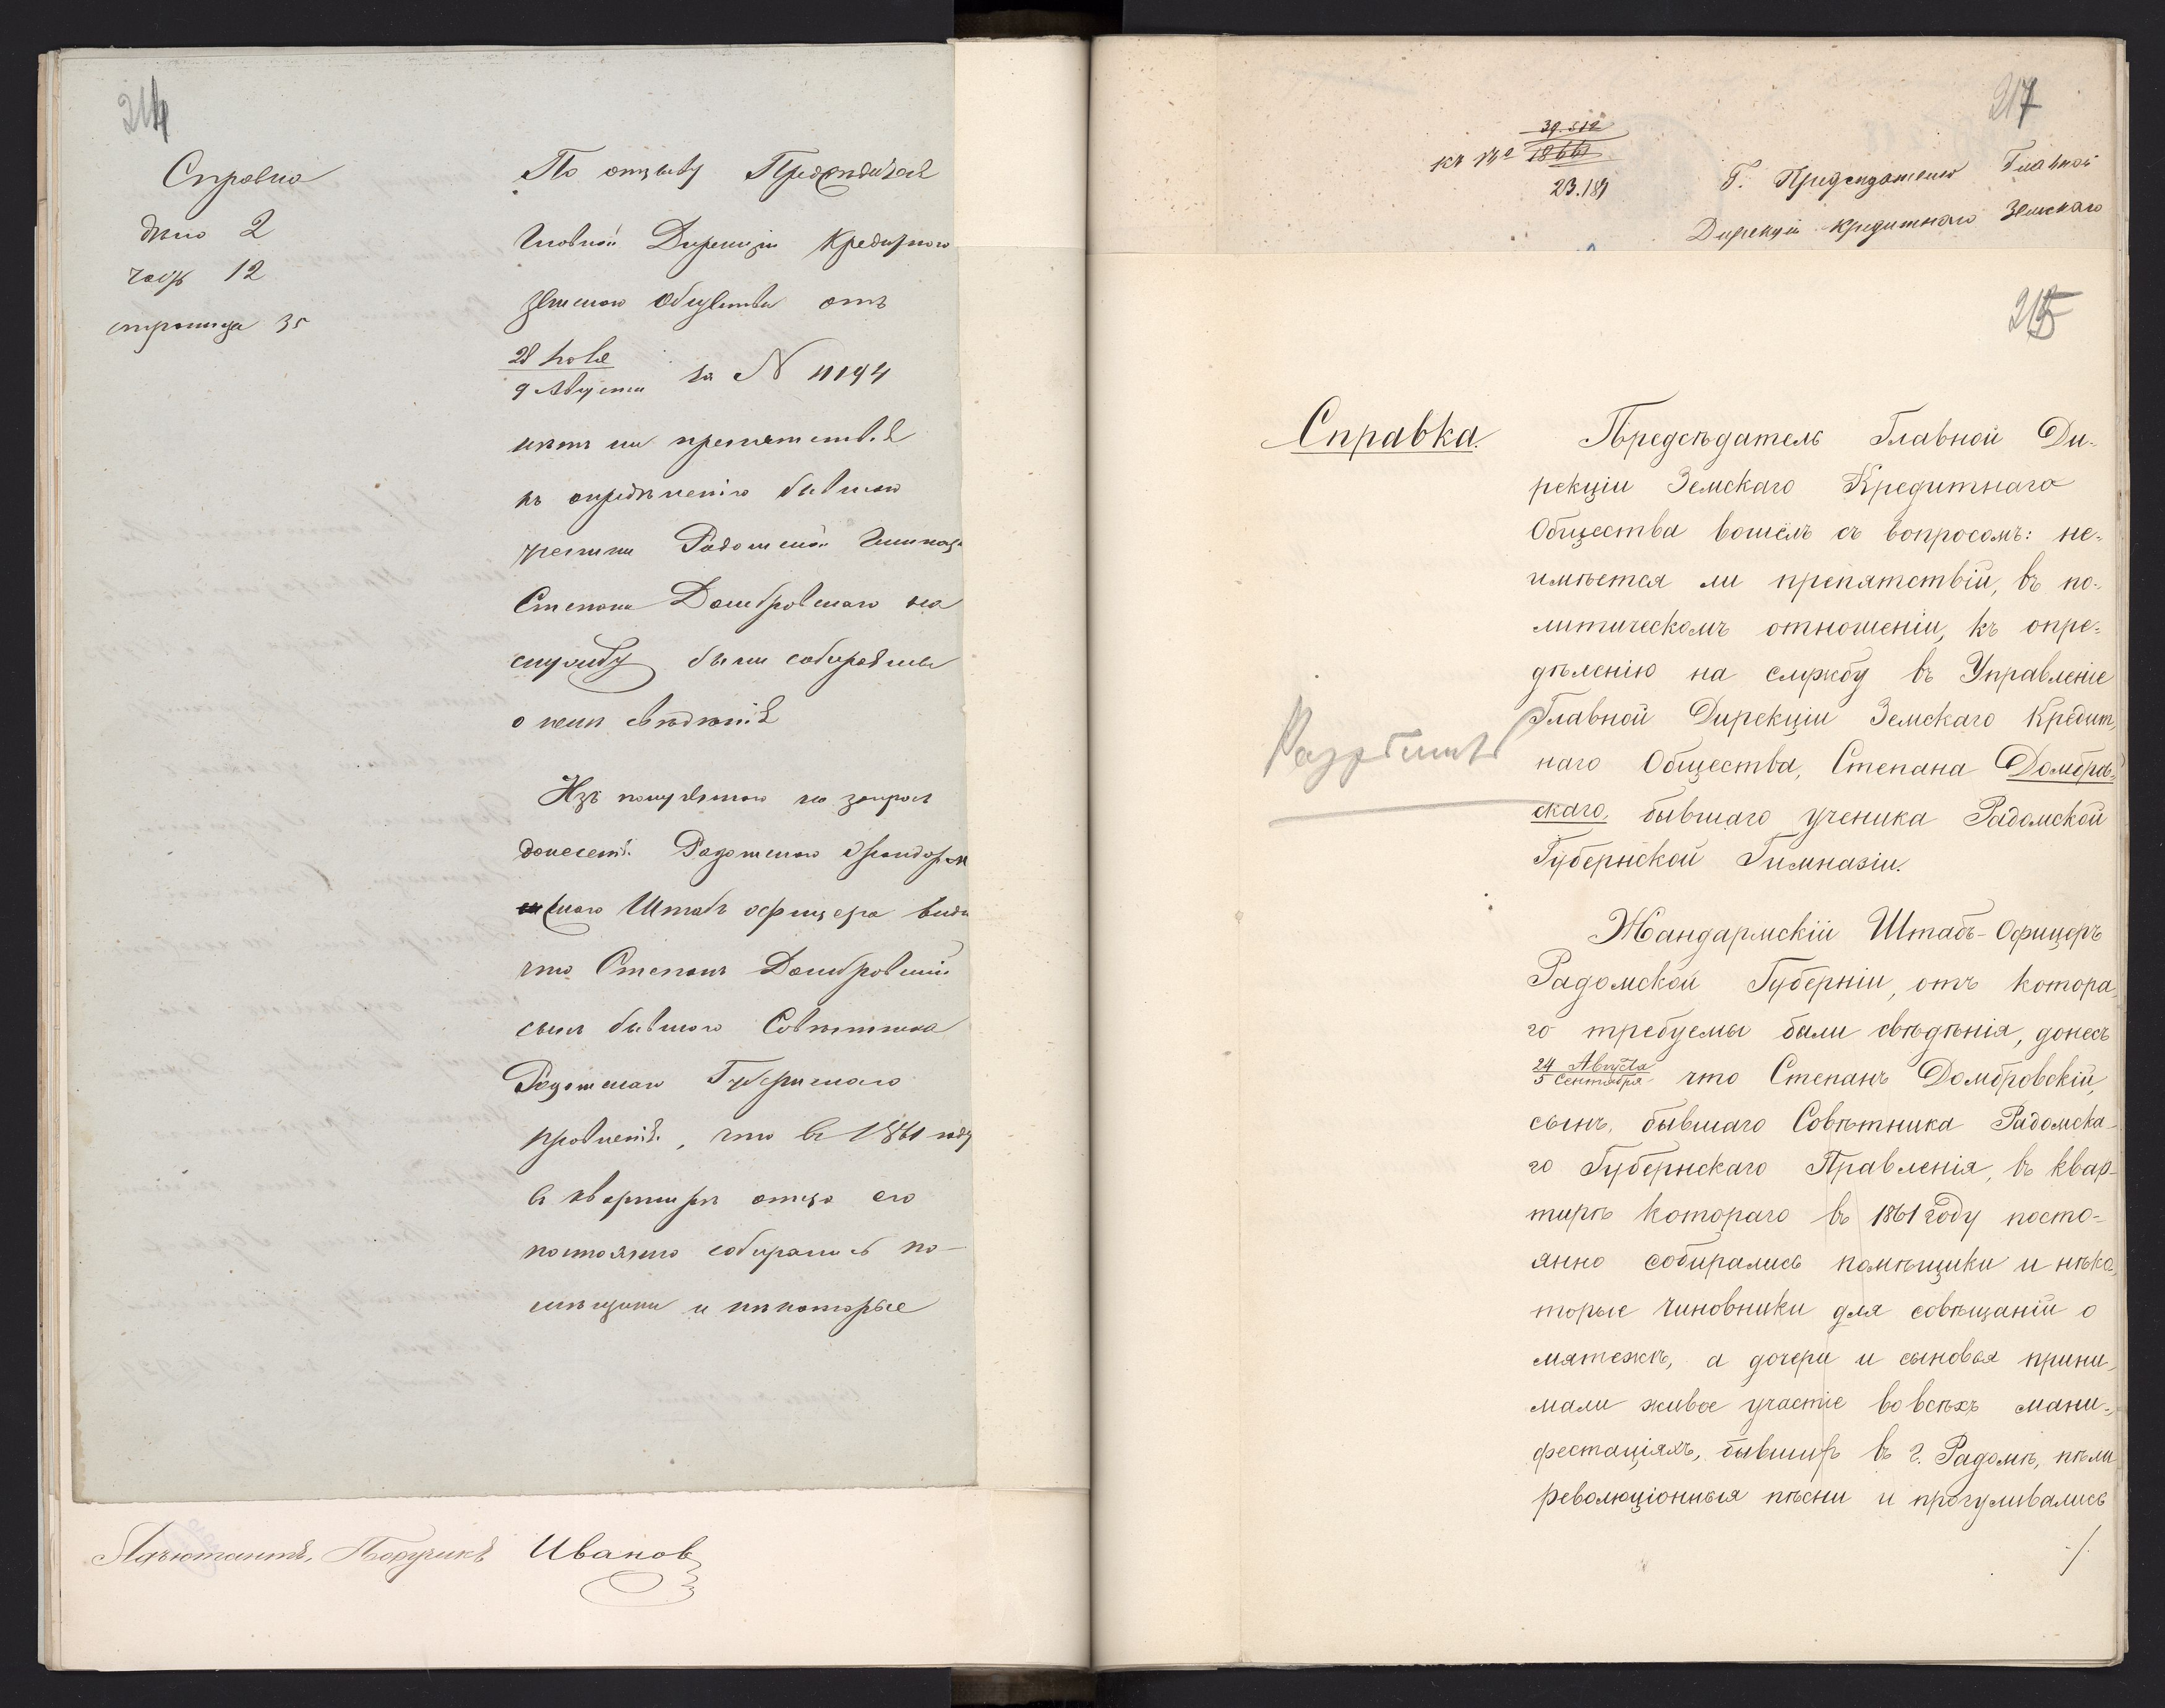 214
Справка
дѣло 2
часть 12
страница 35
По отзыву Предсѣдателя
Главной Дирекціи Кредитнаго
Земскаго Общества отъ
28 Іюля
9 Августа за N 11194
нѣтъ ли препятствія
къ опредѣленію бывшаго
ученика Радомской Гимназіи
Степана Домбровскаго на
службу были собираемы
о немъ свѣдѣнія
Изъ полученнаго на запросъ
донесенія Радомскаго Жандарм
скаго Штабъ офицера видно
что Степанъ Домбровскій
сынъ бывшаго Совѣтника
Радомскаго Губернскаго
правленія, что въ 1861 году
въ квартирѣ отца его
постоянно собирались по-
мѣщики и нѣкоторые
Адъютантъ, Поручикъ Иванов
217
39.512
къ № 18661
23.189
Г. Предсѣдателю Главной
Дирекціи Кредитнаго Земскаго
215
Справка.
Предсѣдатель Главной Ди-
рекціи Земскаго Кредитнаго
Общества вошелъ съ вопросомъ: не-
имѣется ли препятствій, въ по-
литическомъ отношеніи, къ опре-
дѣленію на службу въ Управленіе
Главной Дирекціи Земскаго Кредит-
наго Общества, Степана Домбров-
скаго, бывшаго ученика Радомской
Губернской Гимназіи.
Жандармскій Штабъ-Офицеръ
Радомской Губерніи, отъ котора-
го требуемы были свѣдѣнія, донесъ
24 Августа
5 Сентября что Степанъ Домбровскій,
сынъ, бывшаго Совѣтника Радомска-
го Губернскаго Правленія, въ квар-
тирѣ котораго въ 1861 году посто-
янно собирались помѣщики и нѣко-
торые чиновники для совѣщаній о
мятежѣ, а дочери и сыновья прини-
мали живое участіе во всѣхъ мани-
фестаціяхъ, бывшихъ въ г. Радомѣ, пѣли
революціонныя пѣсни и прогуливались
./.